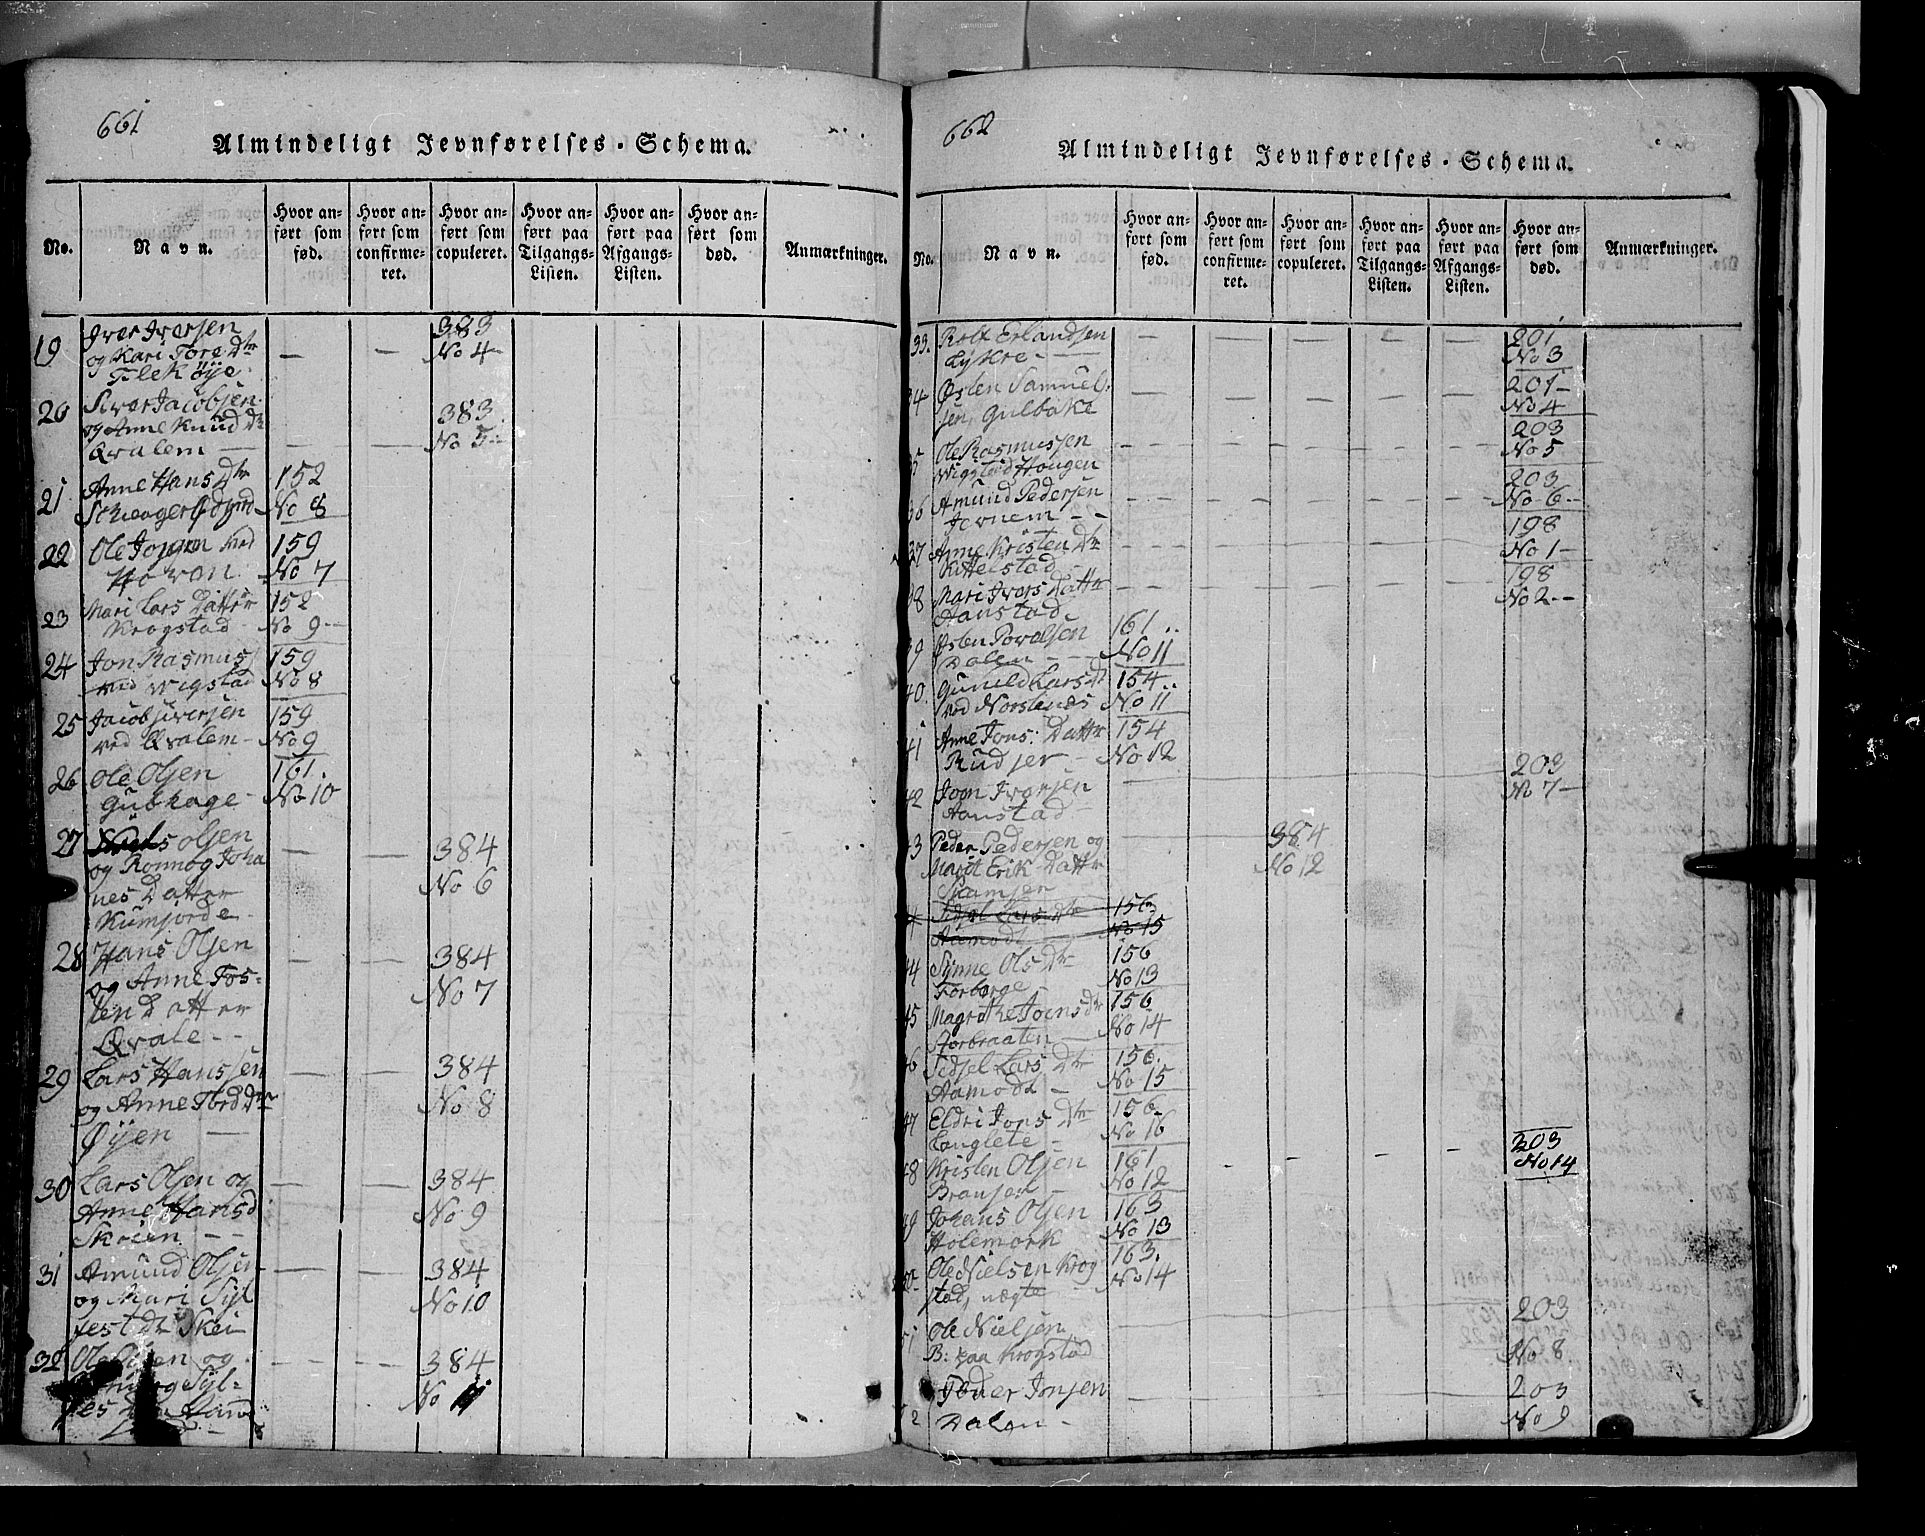 661
Almindeligt Jevnførelses-Schema.
No. Navn. Hvor anført som fød. Hvor anført som confirmeret. Hvor anført som copuleret. Hvor anført paa Tilgangs-Listen. Hvor anført paa Afgangs-Listen. Hvor anført som død. Anmærkninger.
19 Iver Iversen 383
og Kari Tore Dtr — — No 4
Flekøye
20 Siver Jacobsen 383
og Anne Knud Dr No 5
Qvalem
21 Anne Hans Dtr 152
No 8
22 Ole Jogen ved 159
Hovan No 7
23 Mari Lars Datter 152
Krogstad No 9
24 Jon Rasmus 159
ved Wigstad No 8
25 Jacob Siversen 159
ved Qvalem No 9
26 Ole Olsen 161.
Gubhage No 10
27 Niels Olsen
og Ronnog Joha 384
nes Datter No 6
Kumjorde
28 Hans Olsen 384
og Anne Tos-
ten Datter No 7
Qvale
29 Lars Hanssen 384
og Anne Tord Dtr No 8
Øÿen
30 Lars Olsen og 384
Anne Hansd No 9
Skoien
31 Amund Olsen 384
og Mari Syl No 10
fest Dr Skei
32 Ole Olsen og 384
Syl- No 11
662
Almindeligt Jevnførelses-Schema.
No. Navn. Hvor anført som fød. Hvor anført som confirmeret. Hvor anført som copuleret. Hvor anført paa Tilgangs-Listen. Hvor anført paa Afgangs-Listen. Hvor anført som død. Anmærkninger.
33. Rolt Erlandsen 201
Lykre No 3
34 Østen Samuel- 201
sen, Gulbake No 4
5 Ole Rasmussen 203
Wigstad Hougen No 5
36 Amund Pedersen 203
Jornem No 6
37 Anne Kristen Dtr 198
Kittelstad No 1
8 Mari Ivers Dattr 198
Hanstad No 2
39 Østen Povelsen 161
Dalen No 11
40 Gunild Lars Dt 154
ved Norstends No 11
41 Anne Jons: Dattr 154
Rudser No 12
42 Joon Iversen 203
Hanstad No 7
43 Peder Pedersen og 384
Marit Erik Dattr No 12
Skamser
Sidsel Lars Dtr 156
Aamodt No 15
44 Synne Ols Dtr 156
Forberge No 13
45 Magrethe Joens Dr 156
Storbraaten No 14
46 Sidsel Lars Dtr 156.
Aamodt No 15
47 Eldri Jons Dtr 156
Langlete No 16
48 Kristen Olsen 161 203
Bransen No 12 No 14
49 Johans Olsen 163
Holemork No 13
50 Ole Nielsen Krog 163.
stad, uægte No 14
51 Ole Nielsen 203
B: paa Krogstad No 8
52 Peder Jonsen 203
Dalen No 9